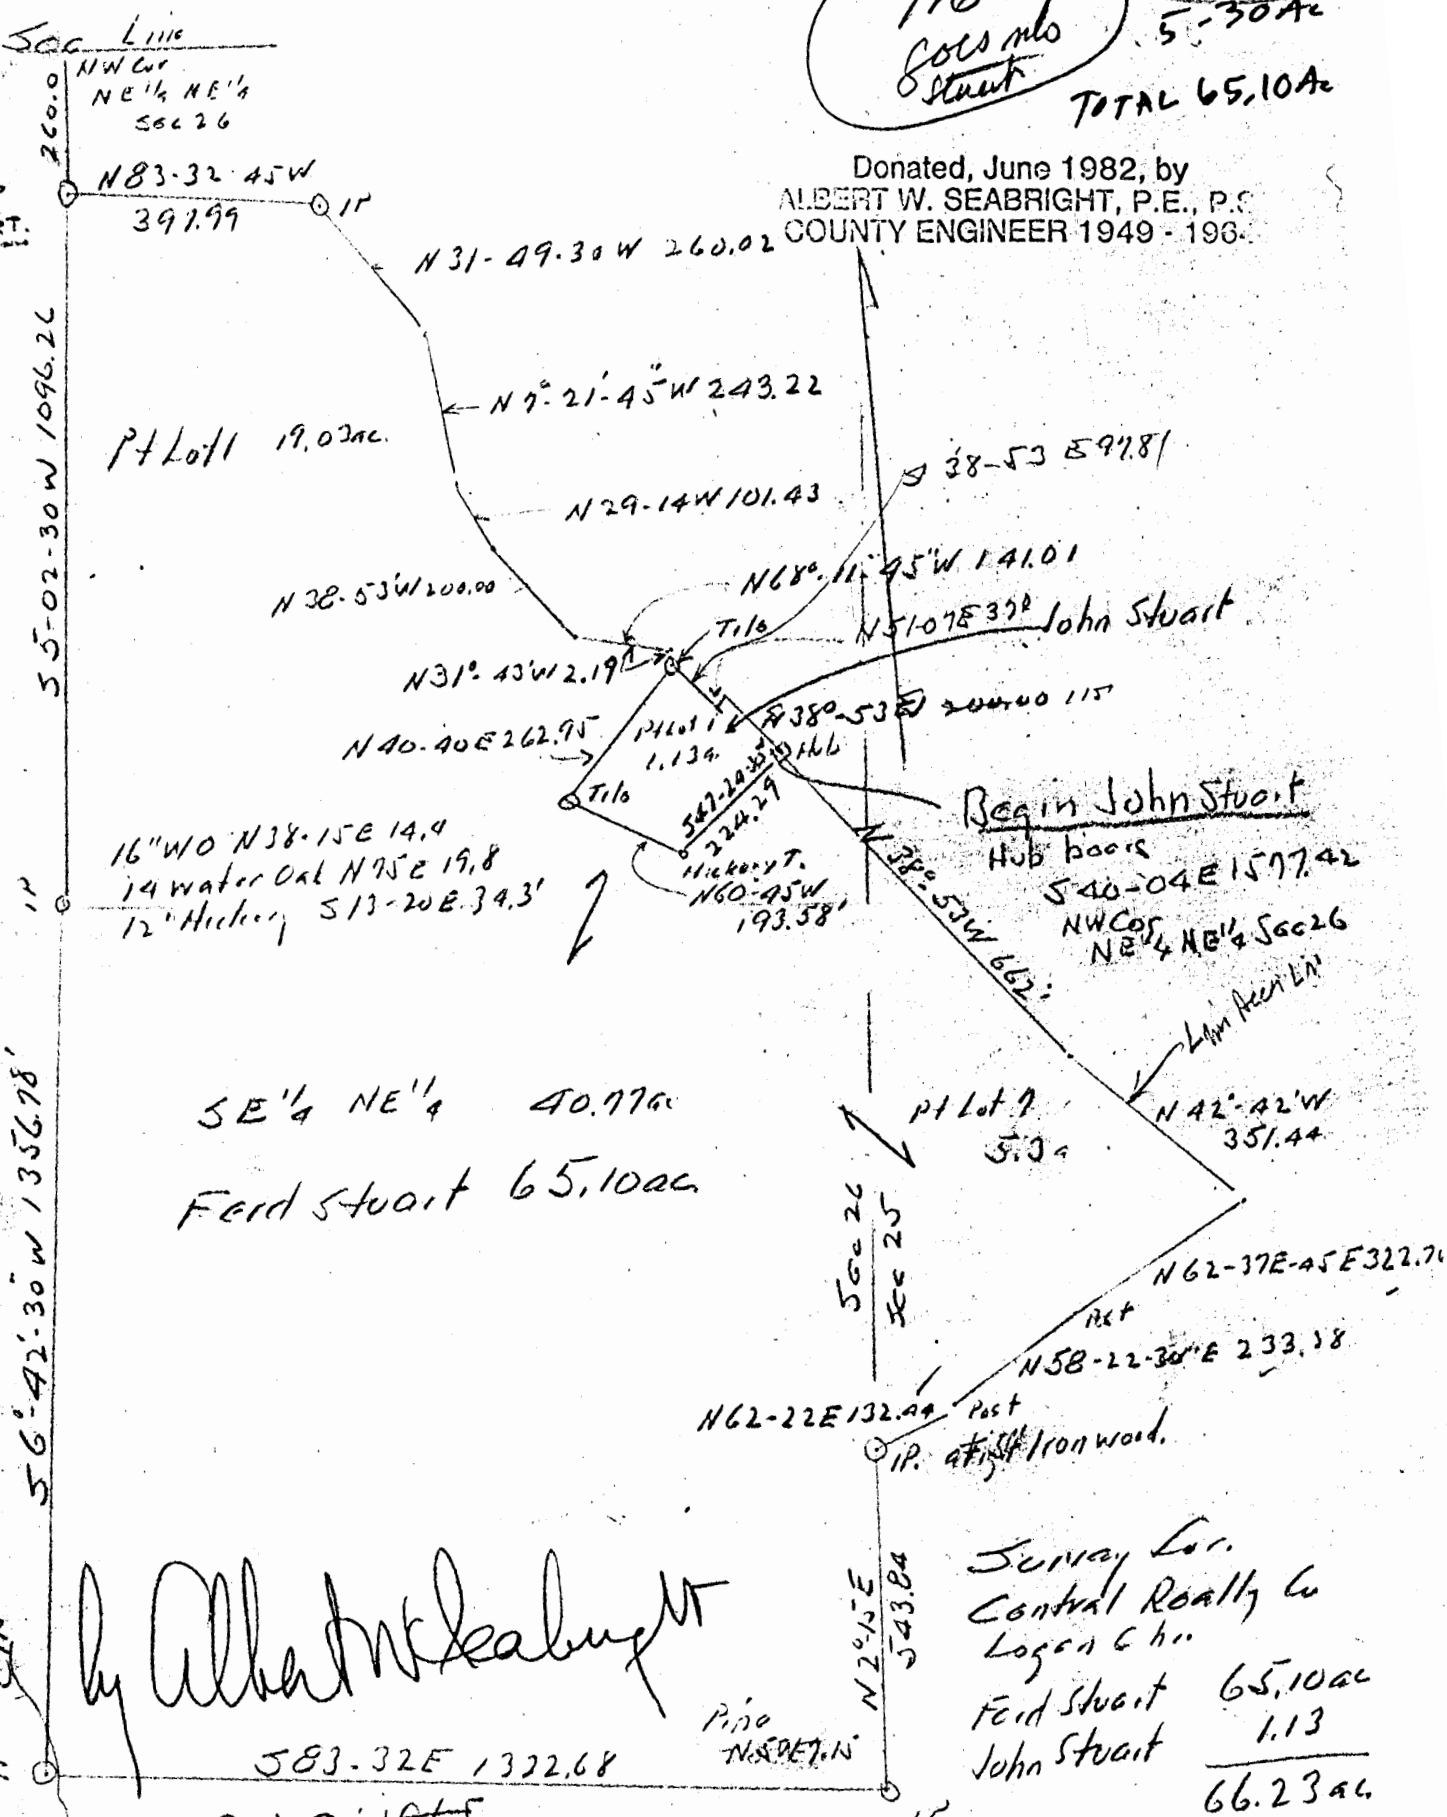 Sec Line
NW Cor
NE 1/4 NE 1/4
Sec 26
260.0
Stuart
5.30 Ac
TOTAL 65.10 Ac
Donated, June 1982, by
ALBERT W. SEABRIGHT, P.E., P.S
COUNTY ENGINEER 1949 - 196
N83-32-45W
397.99
IP
N31-49-30W 260.02
S5-02-30W 1096.26
N7°-21'-45"W 243.22
Pt Lot 1 19.03ac.
S 38-53 E 97.81
N29-14W 101.43
N68°-11'-45"W 141.01
N38-53'W 200.00
Tile
N51-07E 37
John Stuart
N31°-43'W 2.19
N38°-53 200.00 115
N40-40E 262.95
Pt Lot 1
1.13a.
Hub
Tile
224.29
Begin John Stuart
Hub bears
S40-04E 1577.42
NW Cor
NE 1/4 NE 1/4 Sec 26
16" WO N38-15E 14.4
14 Water Oak N75E 19.8
12" Hickory S13-20E 34.3'
IP
Hickory T.
N60-45W
193.58'
N38°-53W 662'
S6°-42'-30"W 1356.78'
SE 1/4 NE 1/4 40.77ac
Pt Lot 7
5.3a
N42°-42'W
351.44
Ferd Stuart 65.10ac.
Sec 26
Sec 25
N62-37E-45E 322.7
Post
N58-22-30"E 233.38
N62-22E 132.44
Post
IP. at Ironwood.
N2°-15E
543.84
Survey For.
Central Realty Co
Logan Ohio
Ferd Stuart 65.10ac
John Stuart 1.13
66.23 ac.
by Albert W Seabright
Pine
S83-32E 1322.68